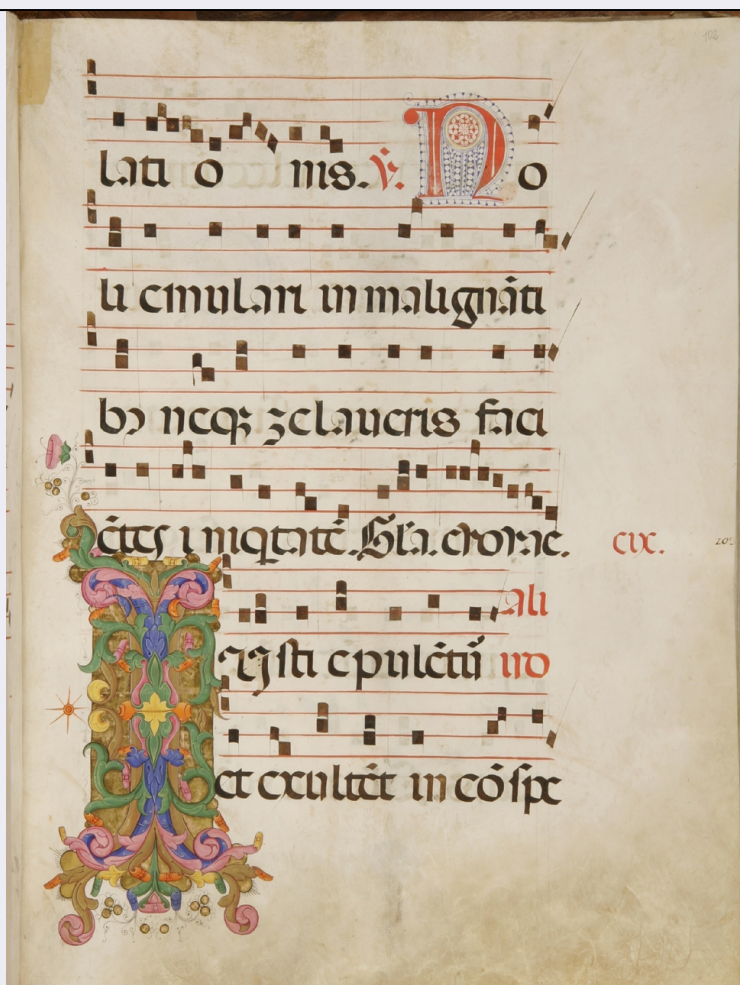 lati o nis. ℣. No
li emulari in malignāti
bꝫ neqꝫ zelaueris faci
ētes iniqtatē. Gl'a. euouae. cix.
Iusti epulētū ali uo
et exultēt in cōspe